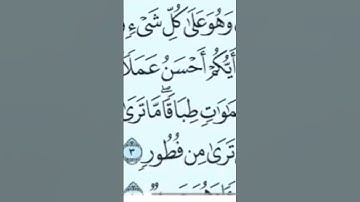 وَهُوَ عَلَىٰ كُلِّ شَىْءٍ
أَيُّكُمْ أَحْسَنُ عَمَلًا
طِبَاقًا ۖ مَّا تَرَىٰ
تَرَىٰ مِن فُطُورٍ ٣